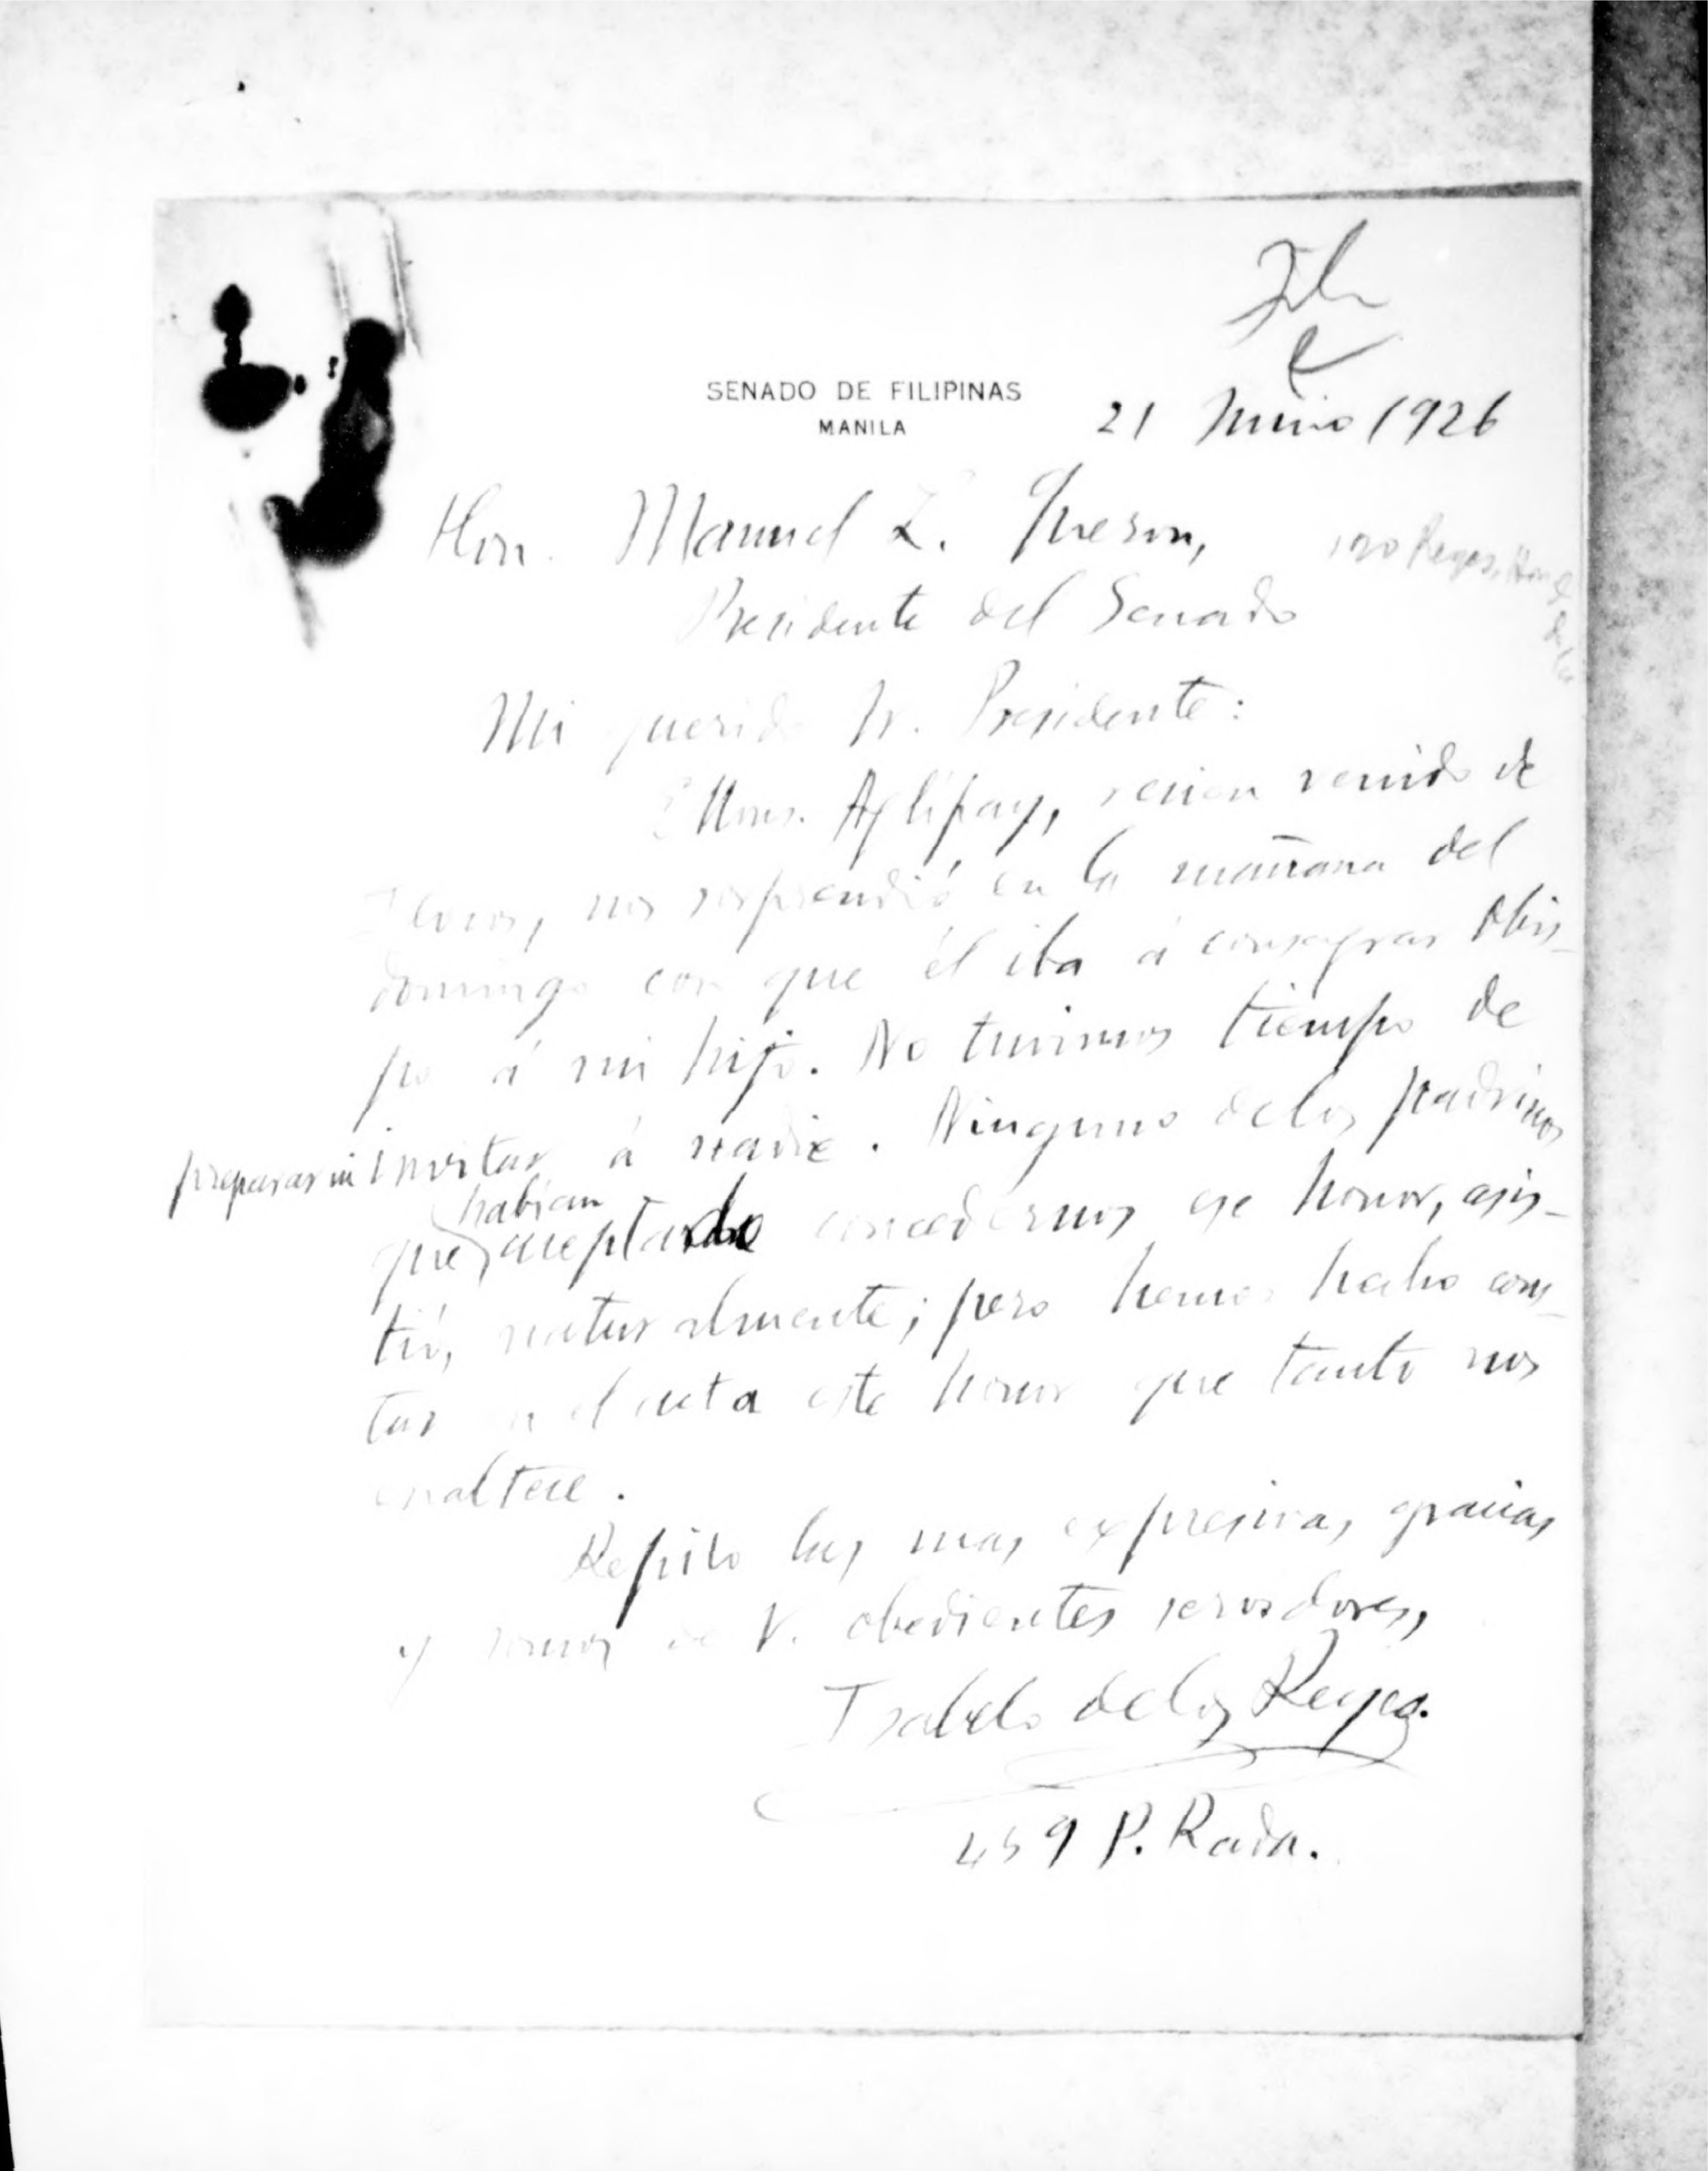 File
SENADO DE FILIPINAS
MANILA
21 Junio 1926
Hon. Manuel L. Queson,
Presidente del Senado
Mi querido Sr. Presidente:
Mons. Aglípay, recien venido de
Ilocos, nos sorprendió en la mañana del
domingo con que él iba á consagrar Obis-
po á mi hijo. No tuvimos tiempo de
preparar ni invitar á nadie. Ninguno de los padrinos
habian
que aceptado concedernos ese honor, asis-
tió, naturalmente; pero hemos hecho cons-
tar en el acta este honor que tanto nos
enaltece.
Repito las mas expresivas gracias
y somos de V. obedientes servidores,
Isabelo de los Reyes.
459 P. Rada.